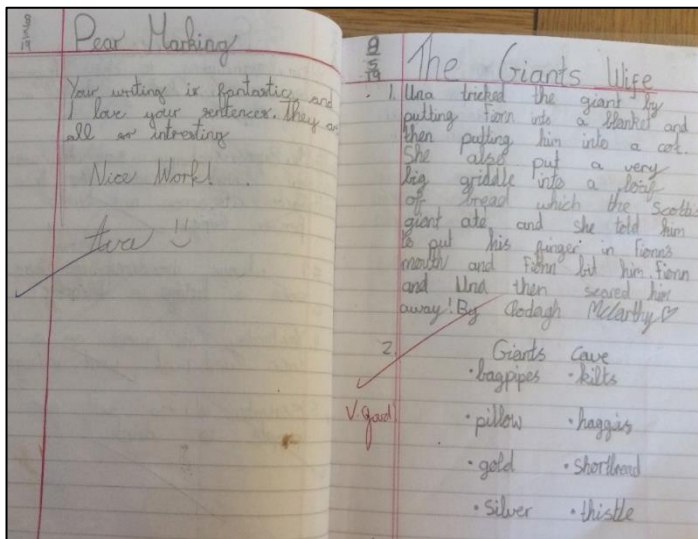 Pear Marking
Your writing is fantastic and
I love your sentences. They are
all so intresting
Nice Work!
Ava
8
5
19
The Giants Wife
1. Una tricked the giant by
putting Fionn into a blanket and
then putting him into a cot.
She also put a very
big griddle into a loaf
of bread which the Scottish
giant ate and she told him
to put his finger in Fionn's
mouth and Fionn bit him. Fionn
and Una then scared him
away! By Clodagh McCarthy ♡
2. Giants Cave
• bagpipes • kilts
V. good!
• pillow • haggis
• gold • shortbread
• silver • thistle